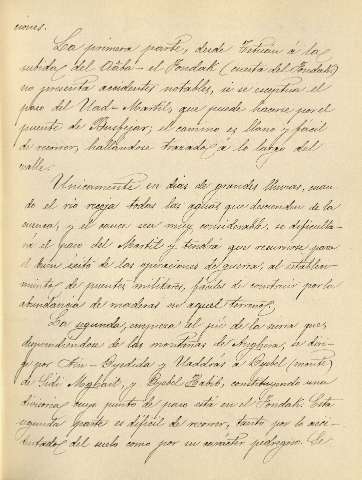 ciones.
La primera parte, desde Tetuán á la
subida del Aâba-el Fondak (cuesta del Fondak)
no presenta accidentes notables, si se exceptúa el
paso del Uad-Martil, que puede hacerse por el
puente de Busfejar; el camino es llano y fácil
de recorrer, hallándose trazado á lo largo del
valle.
Unicamente en dias de grandes lluvias, cuan-
do el río recoja todas las aguas que descienden de la
cuenca, y el cauce sea muy considerable, se dificulta-
rá el paso del Martil y tendrá que recurrirse para
el buen éxito de las operaciones de guerra, al estableci-
miento de puentes militares, fáciles de construir por la
abundancia de maderas en aquel terreno.
La segunda, empieza al pié de la sierra que,
desprendiéndose de las montañas de Anghera, se diri-
ge por Ain-Gedida y Uaddrás á Gebel (monte)
de Sidi y Gebel Habib, constituyendo una
divisoria cuyo punto de paso está en el Fondak. Esta
segunda parte es dificil de recorrer, tanto por lo acci-
dentado del suelo como por su carácter pedregoso. Se